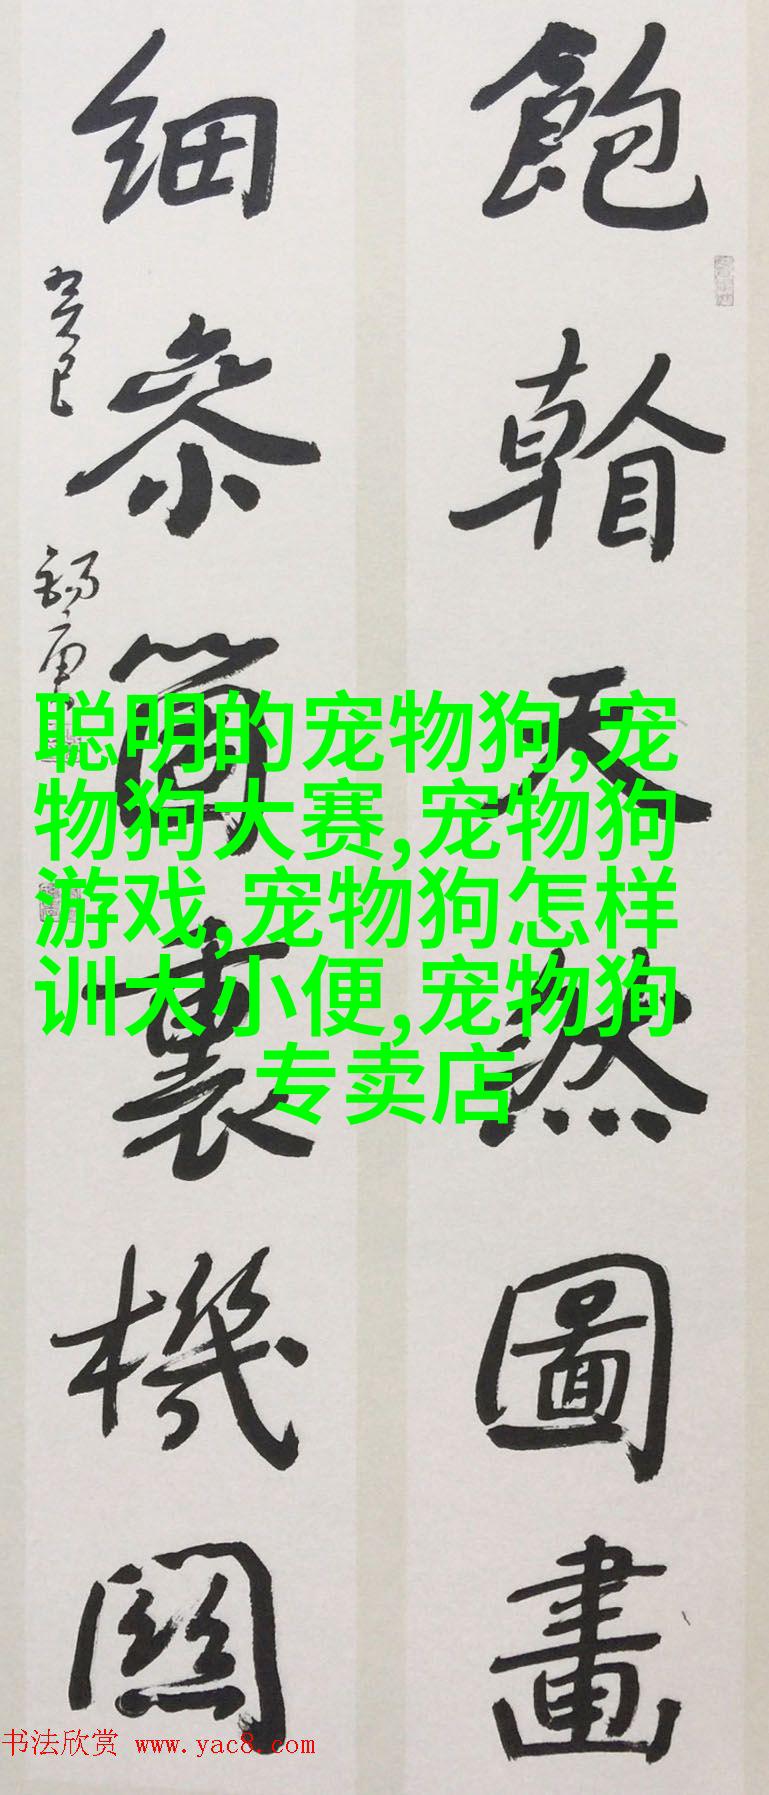 飽天然圖畫
細參箇裏機關
癸巳
聪明的宠物狗,宠
物狗大赛,宠物狗
游戏,宠物狗怎样
训大小便,宠物狗
专卖店
书法欣赏 www.yac8.com